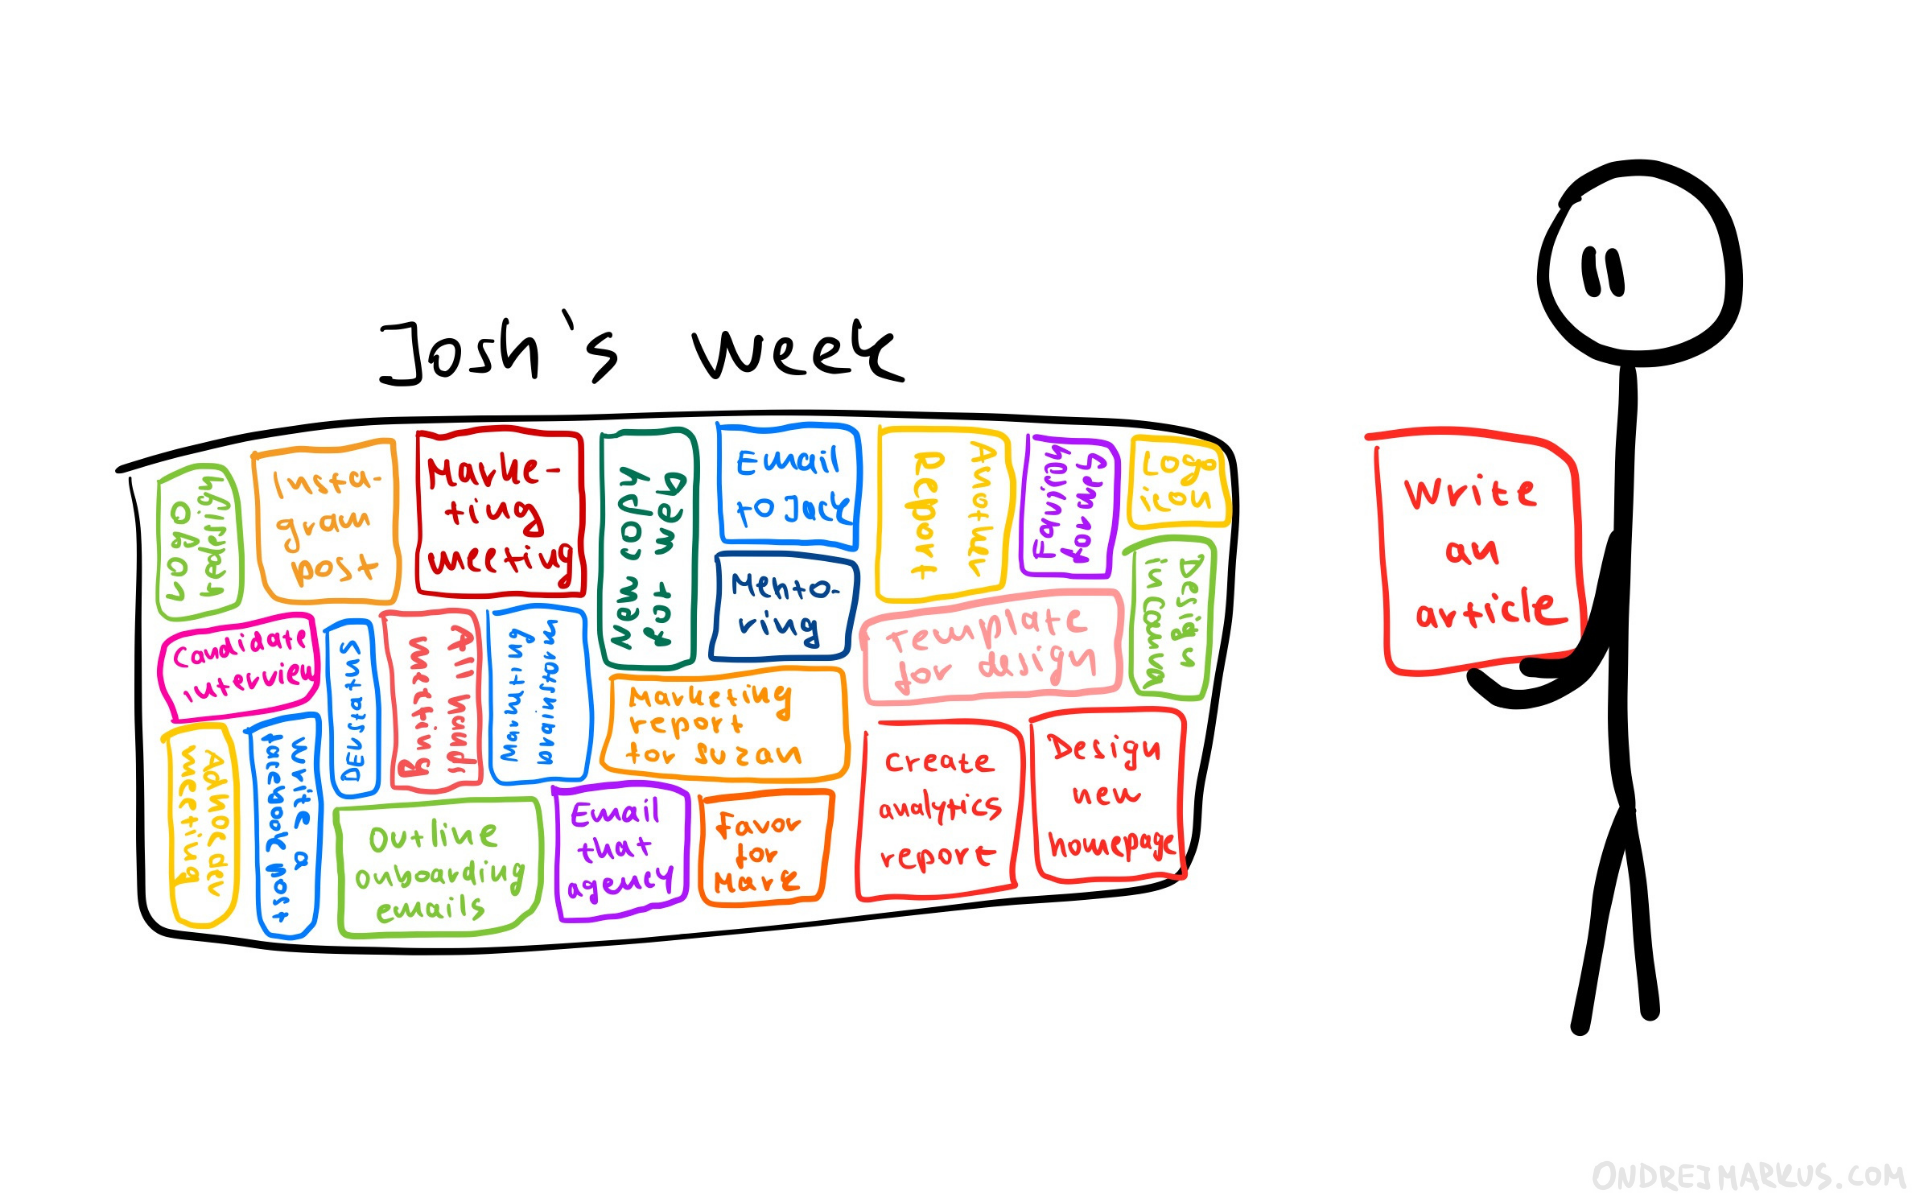 Josh's week
Logo
redesign
Insta-
gram
post
Marke-
ting
meeting
New copy
for web
Email
to Jack
Mento-
ring
Another
Report
Favicon
for web
Logo
icon
Design
in canva
Template
for design
Candidate
interview
DEVstatus
All hands
meeting
brainstorm
Marketing
report
for suzan
Ad hoc dev
meeting
Write a
facebook post
Outline
onboarding
emails
Email
that
agency
Favor
for
Mark
Create
analytics
report
Design
new
homepage
Write
an
article
ONDREJMARKUS.COM